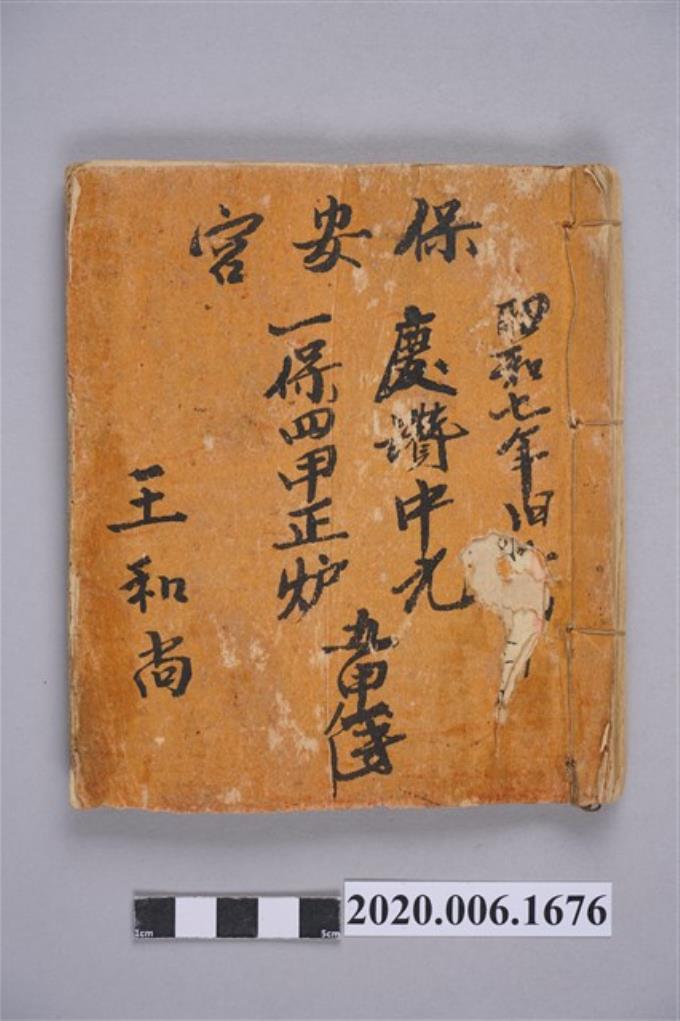 保安宮
昭和七年旧
慶讚中元
一保四甲正炉
九甲簿
王和尚
1cm 5cm
2020.006.1676